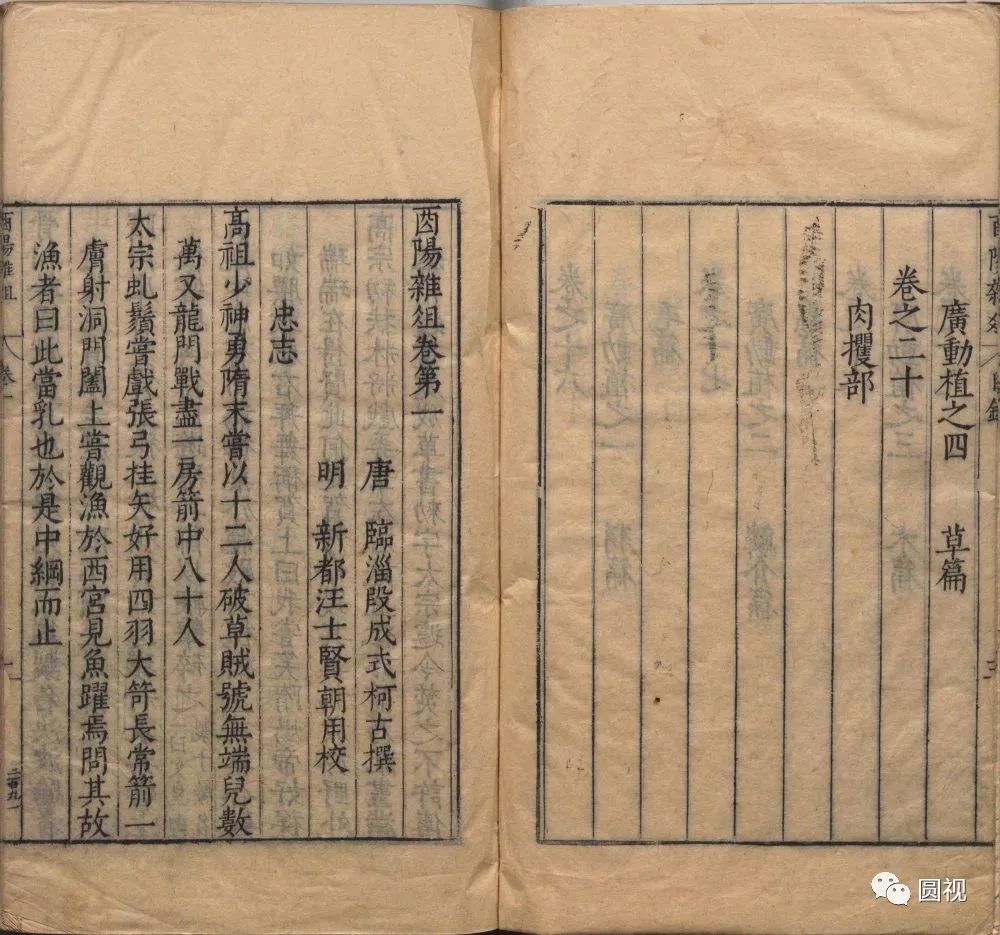 廣動植之四　草篇
卷之二十
肉攫部
酉陽雜俎卷第一
唐　臨淄段成式柯古撰
明　新都汪士賢朝用校
忠志
高祖少神勇隋末嘗以十二人破草賊號無端兒數
萬又龍門戰盡一房箭中八十人
太宗虬鬚嘗戲張弓挂矢好用四羽大笴長常箭一
膚射洞門闔上嘗觀漁於西宮見魚躍焉問其故
漁者曰此當乳也於是中網而止
酉陽雜俎
卷一
圆视